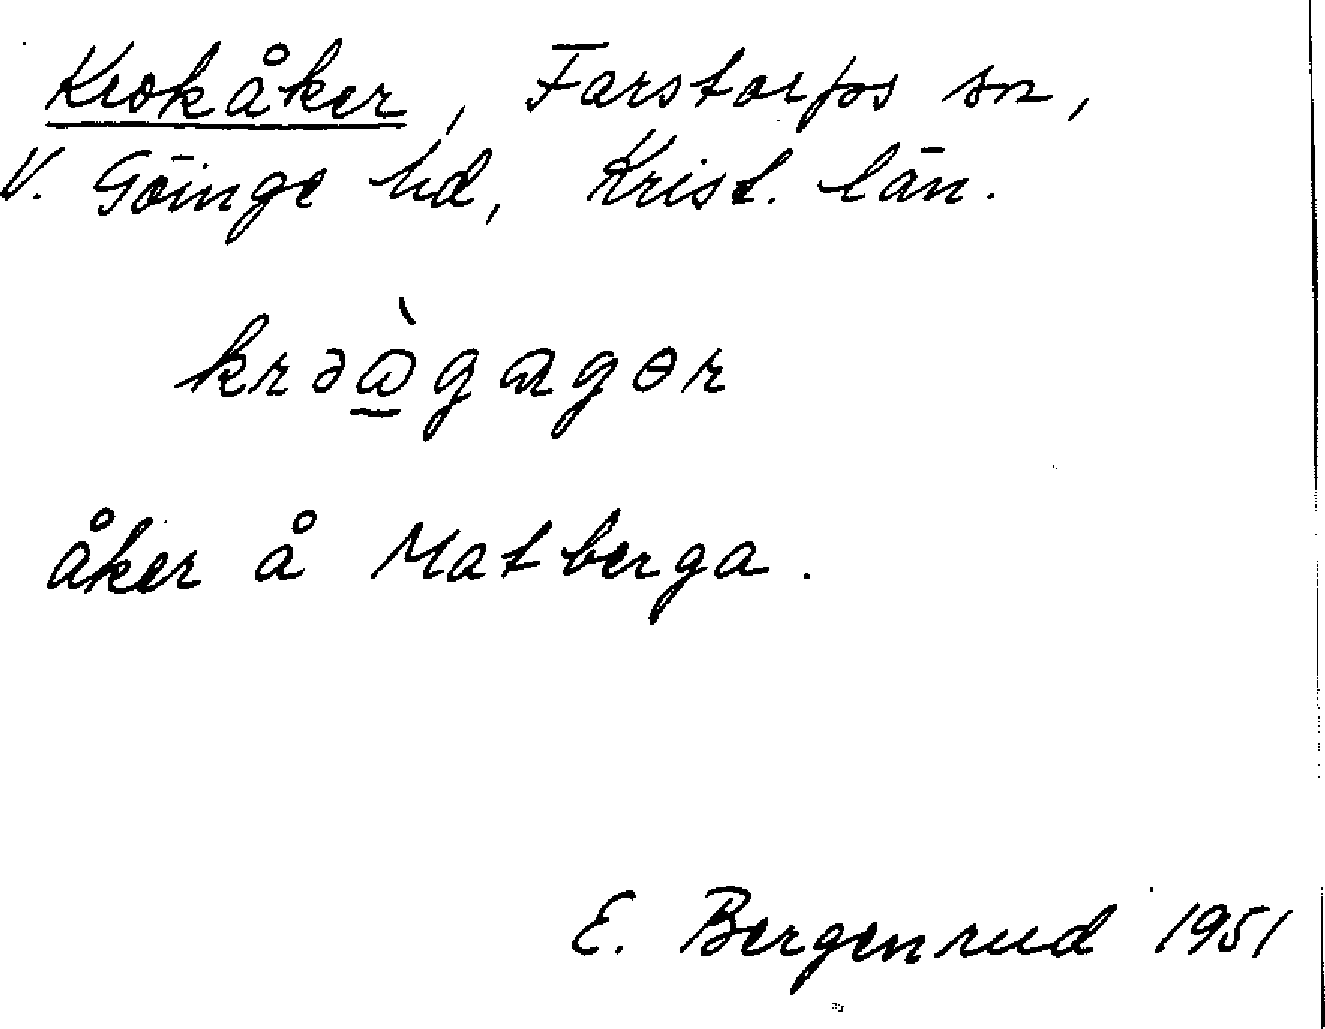 Krokåker, Farstorps sn,
V. Göinge hd, Krist. län.
krəà̱gagər
åker å Matberga.
E. Bergenrud 1951